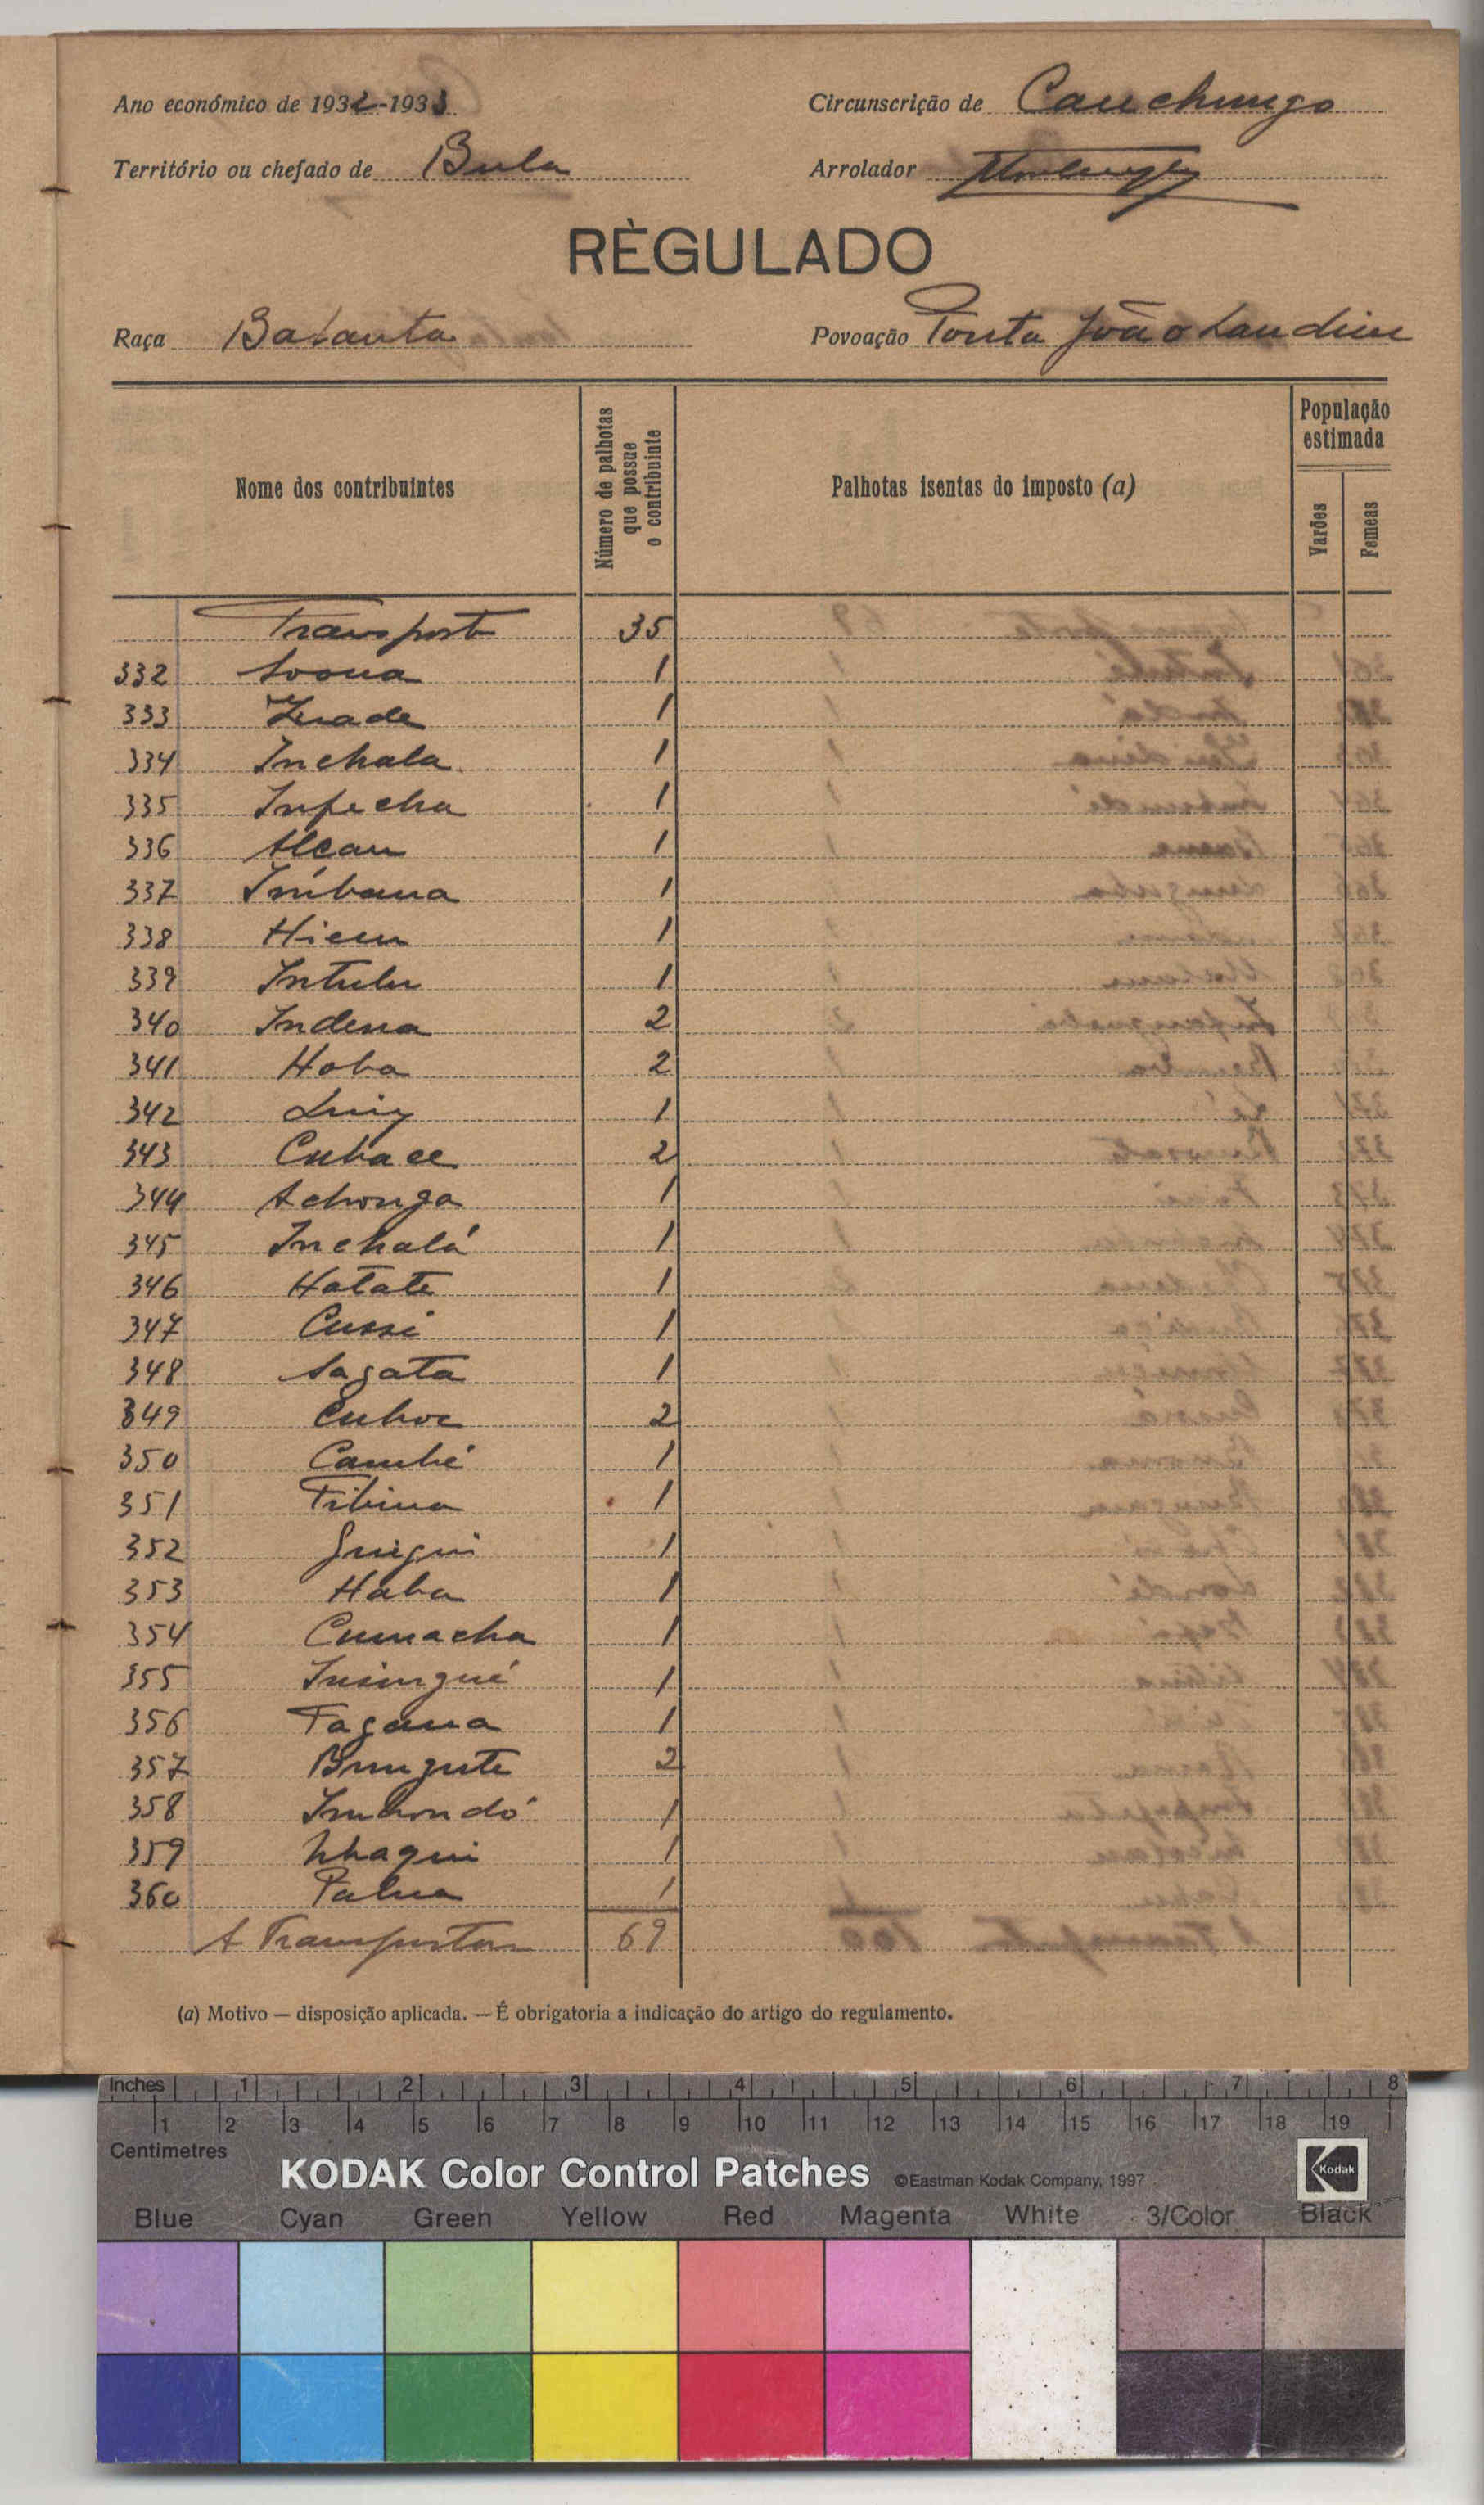 Ano económico de 1932-1933
Circunscrição de Cauchungo
Território ou chefado de Bula
Arrolador
RÈGULADO
Raça Balanta
Povoação Ponta João Landim
Nome dos contribuintes
Número de palhotas que possue o contribuinte
Palhotas isentas do imposto (a)
População estimada
Varões
Femeas
Transporte 35
332 1
333 1
334 Inchala 1
335 Infecha 1
336 Alcan 1
337 Imbana 1
338 Hiem 1
339 Intulu 1
340 Indena 2
341 Hoba 2
342 Luiz 1
343 Cubace 2
344 Achonga 1
345 Inchalá 1
346 Hatate 1
347 Cussi 1
348 Sagata 1
349 Cuboc 2
350 Cambé 1
351 Fibina 1
352 1
353 Haba 1
354 Cumacha 1
355 Insingué 1
356 Fagana 1
357 2
358 Imbondó 1
359 1
360 1
A Transportar 69
(a) Motivo — disposição aplicada. — É obrigatoria a indicação do artigo do regulamento.
Inches 1 2 3 4 5 6 7 8
1 2 3 4 5 6 7 8 9 10 11 12 13 14 15 16 17 18 19
Centimetres
KODAK Color Control Patches ©Eastman Kodak Company, 1997 Kodak
Blue Cyan Green Yellow Red Magenta White 3/Color Black